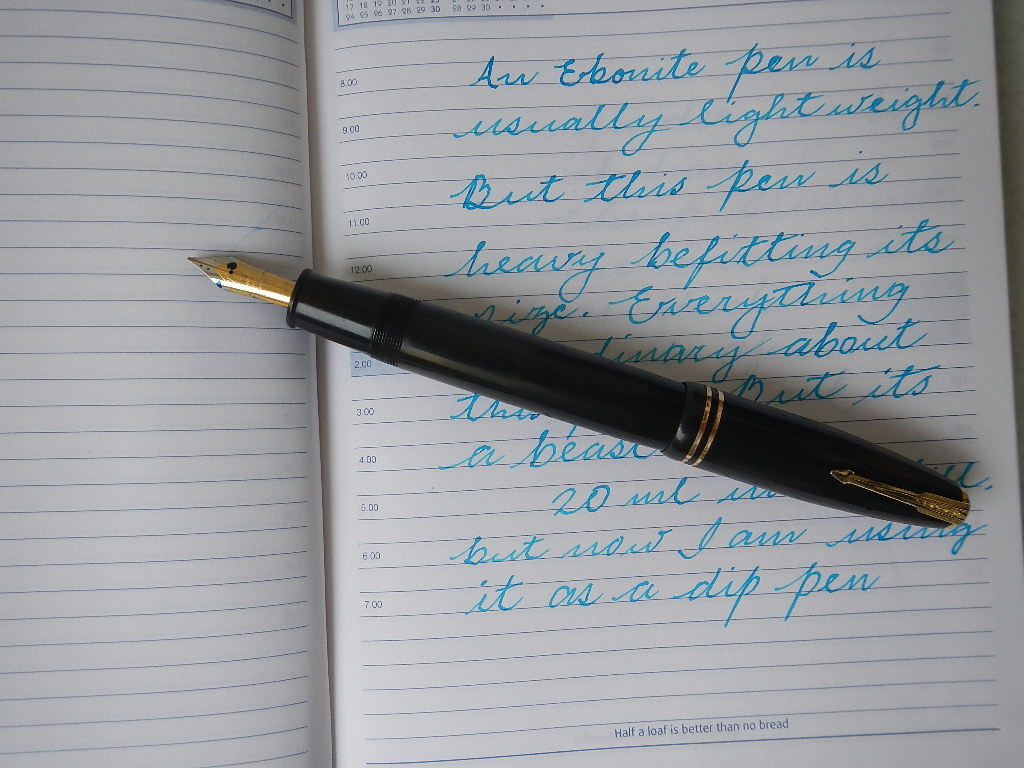 17 18 19 20 21 22 23
24 25 26 27 28 29 30 28 29 30
8.00 An Ebonite pen is
9.00 usually light weight.
10.00 But this pen is
11.00
12.00 heavy befitting its
size. Everything
2.00 dinary about
3.00 this But its
4.00 a beast
5.00 20 ml in ill.
6.00 but now I am using
7.00 it as a dip pen
Half a loaf is better than no bread